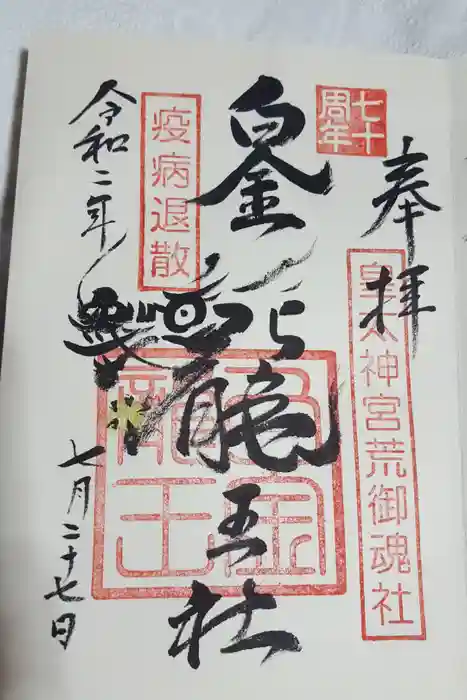 七十
周年
奉拝
皇太神宮荒御魂社
白金龍王社
白金
龍王
疫病退散
令和二年
七月二十七日